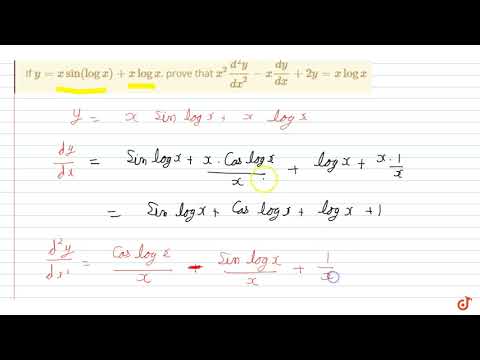 If y = x sin(log x) + x log x. prove that x² d²y/dx² − x dy/dx + 2y = x log x
y = x Sin log x + x log x
dy/dx = Sin log x + x · Cos log x / x + log x + x · 1/x
= Sin log x + Cos log x + log x + 1
d²y/dx² = Cos log x / x - Sin log x / x + 1/x